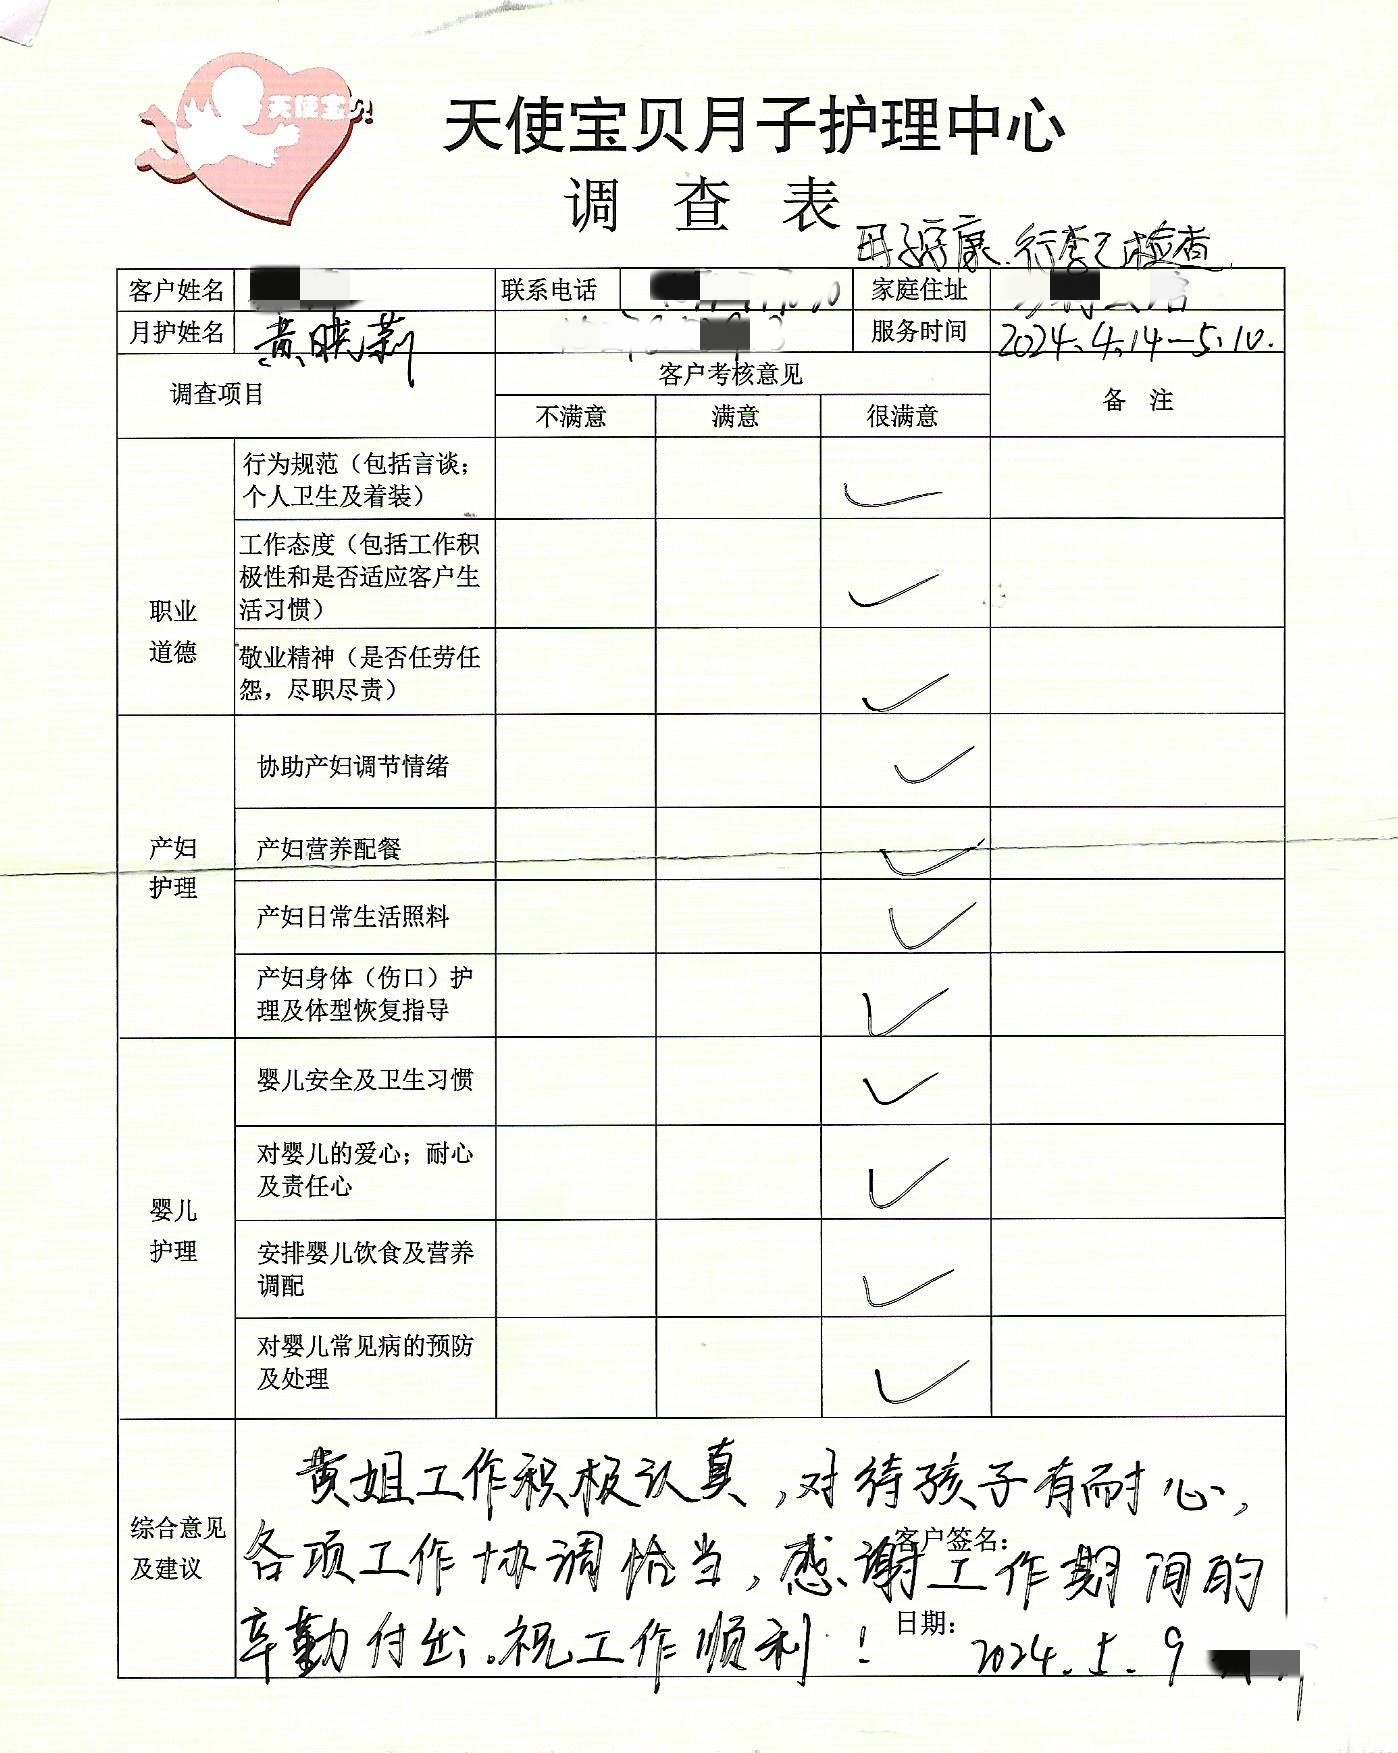 天使宝贝
天使宝贝月子护理中心
调 查 表
母子平康、行李已检查
客户姓名 联系电话 家庭住址
月护姓名 黄晓莉 服务时间 2024.4.14—5.10.
调查项目 客户考核意见 备 注
不满意 满意 很满意
职业
道德
行为规范（包括言谈；
个人卫生及着装）
工作态度（包括工作积
极性和是否适应客户生
活习惯）
敬业精神（是否任劳任
怨，尽职尽责）
产妇
护理
协助产妇调节情绪
产妇营养配餐
产妇日常生活照料
产妇身体（伤口）护
理及体型恢复指导
婴儿
护理
婴儿安全及卫生习惯
对婴儿的爱心；耐心
及责任心
安排婴儿饮食及营养
调配
对婴儿常见病的预防
及处理
综合意见
及建议
黄姐工作积极认真，对待孩子有耐心，
客户签名：
各项工作协调恰当，感谢工作期间的
辛勤付出，祝工作顺利！
日期：
2024.5.9